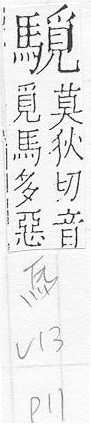 莫狄切音
覓馬多惡
V13
P11